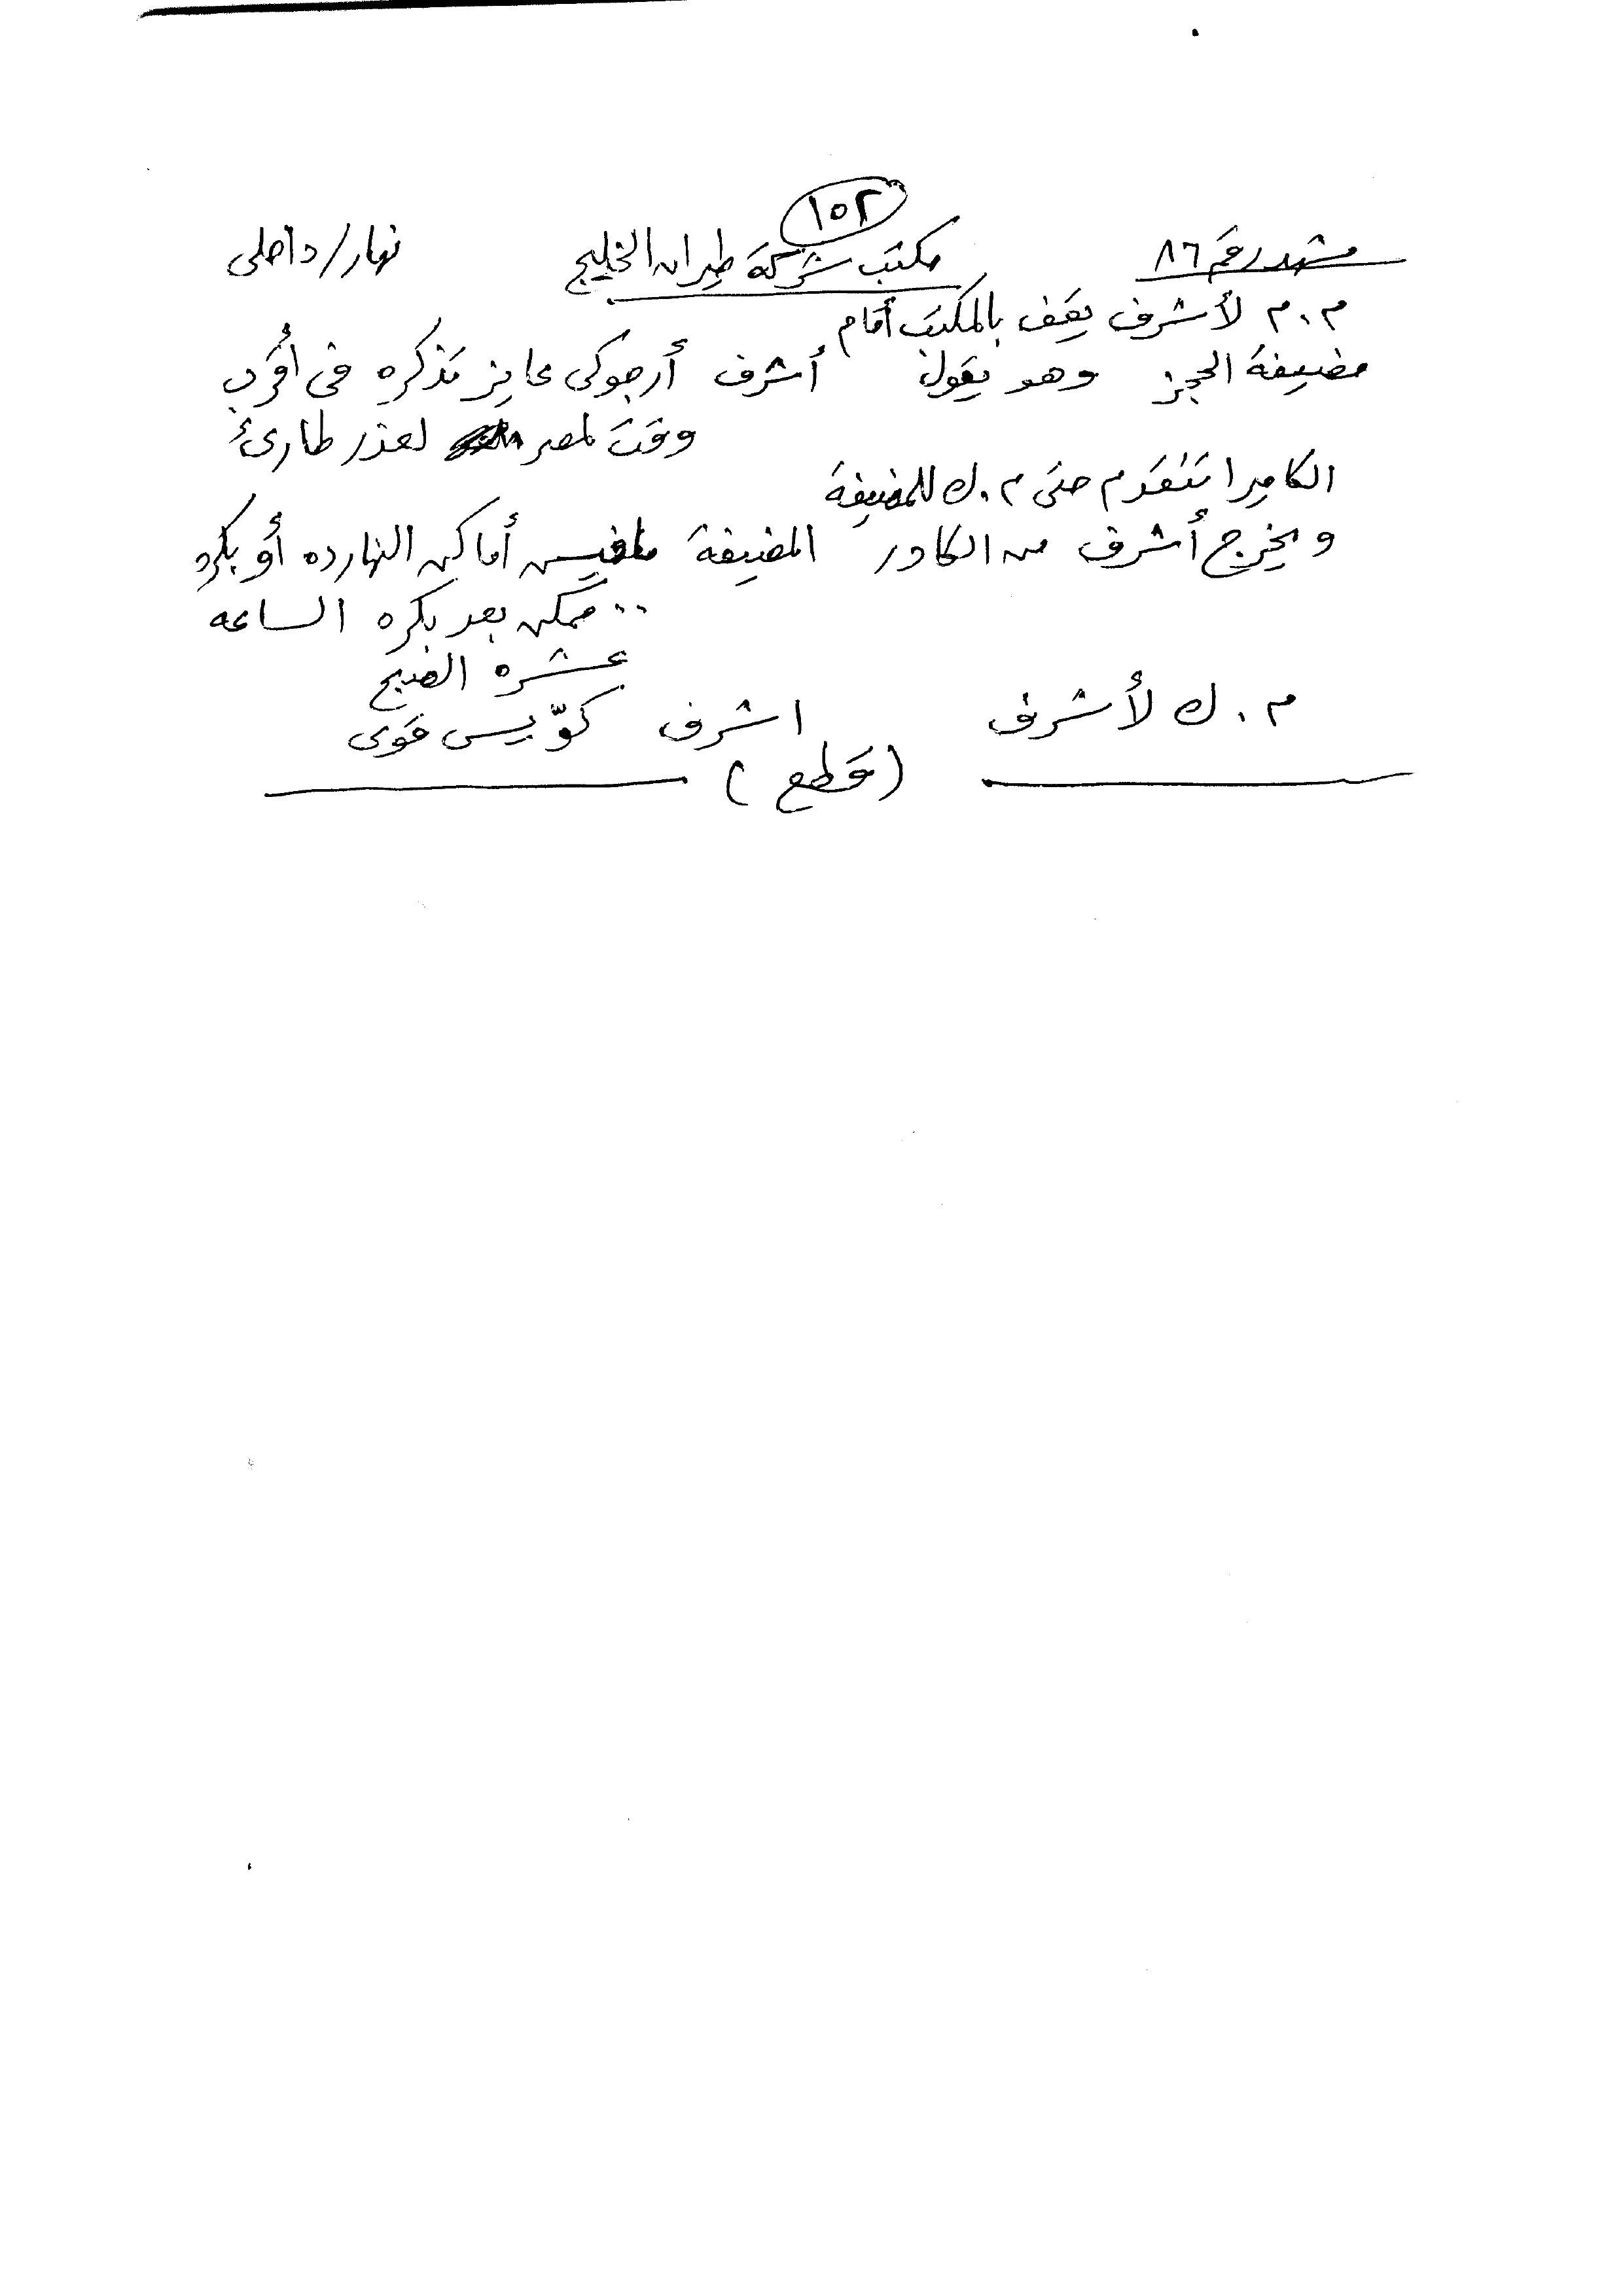 ١٥٢
مشهد رقم ٨٦ مكتب شركة طيران الخليج نهار/داخلى
م.م لأشرف يقف بالمكتب أمام
مضيفة الحجز وهو يقول أشرف أرجوكى عايز تذكره فى أقرب
وقت لمصر لعذر طارئ
الكاميرا تتقدم حتى م.ك للمضيفة
ويخرج أشرف من الكادر المضيفة مافيس أماكن النهارده أو بكره
.. ممكن بعد بكره الساعه
عشره الصبح
م.ك لأشرف اشرف كوّيس قوى
(قطع)